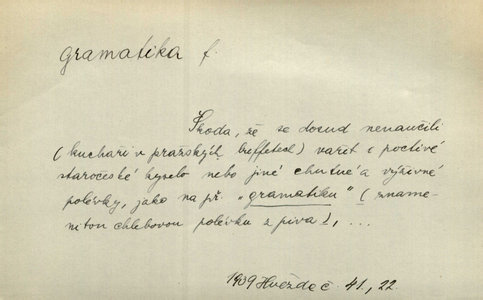 gramatika f.
Škoda, že se dosud nenaučili
(kuchaři v pražských buffetech) vařit i poctivé
staročeské kyselo nebo jiné chutné a výživné
polévky, jako na př. „gramatiku" (zname-
nitou chlebovou polévku z piva), ...
1909 Hvězda č. 41, 22.